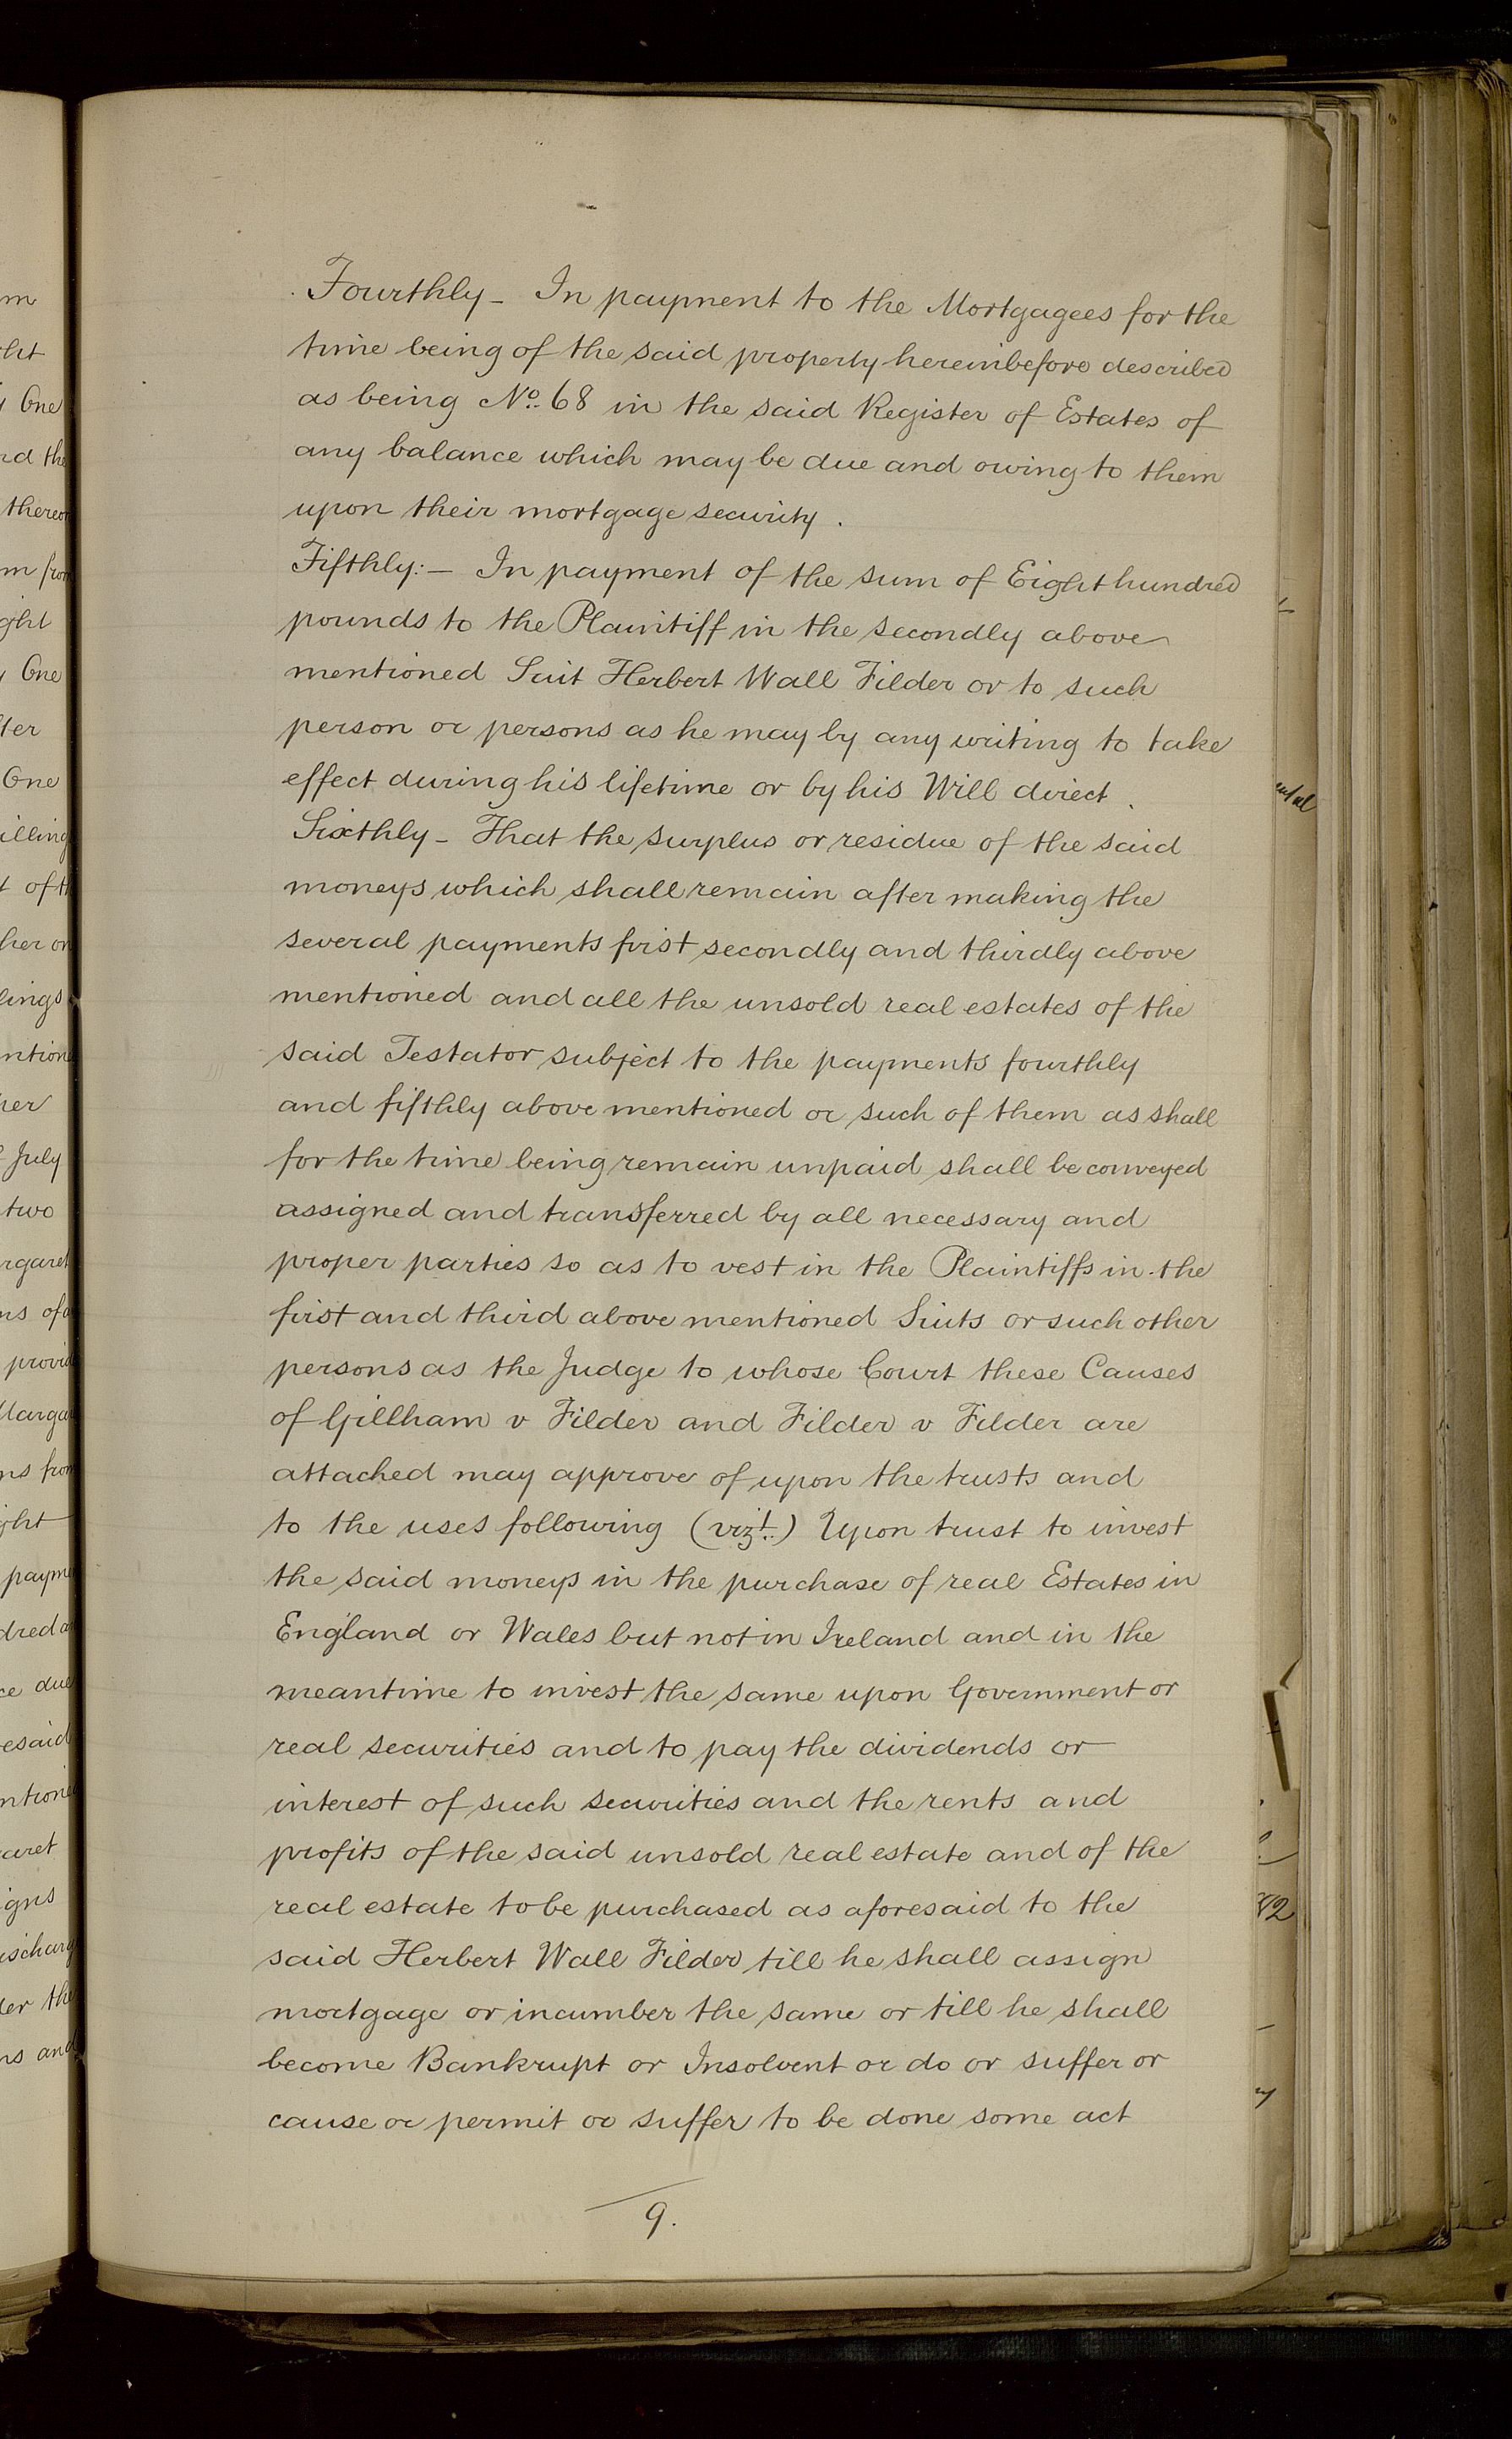 Fourthly - In payment to the Mortgagees for the
time being of the said property hereinbefore described
as being No. 68 in the said Register of Estates of
any balance which may be due and owing to them
upon their mortgage security.
Fifthly:- In payment of the sum of Eight hundred
pounds to the Plaintiff in the secondly above
mentioned Suit Herbert Wall Filder or to such
person or persons as he may by any writing to take
effect during his lifetime or by his Will direct.
Sixthly - That the surplus or residue of the said
moneys which shall remain after making the
several payments first secondly and thirdly above
mentioned and all the unsold real estates of the
said Testator subject to the payments fourthly
and fifthly above mentioned or such of them as shall
for the time being remain unpaid shall be conveyed
assigned and transferred by all necessary and
proper parties so as to vest in the Plaintiffs in the
first and third above mentioned Suits or such other
persons as the Judge to whose Court these Causes
of Gillham v Filder and Filder v Filder are
attached may approve of upon the trusts and
to the uses following (vizt.) Upon trust to invest
the said moneys in the purchase of real Estates in
England or Wales but not in Ireland and in the
meantime to invest the same upon Government or
real securities and to pay the dividends or
interest of such securities and the rents and
profits of the said unsold real estate and of the
real estate to be purchased as aforesaid to the
said Herbert Wall Filder till he shall assign
mortgage or incumber the same or till he shall
become Bankrupt or Insolvent or do or suffer or
cause or permit or suffer to be done some act
9.